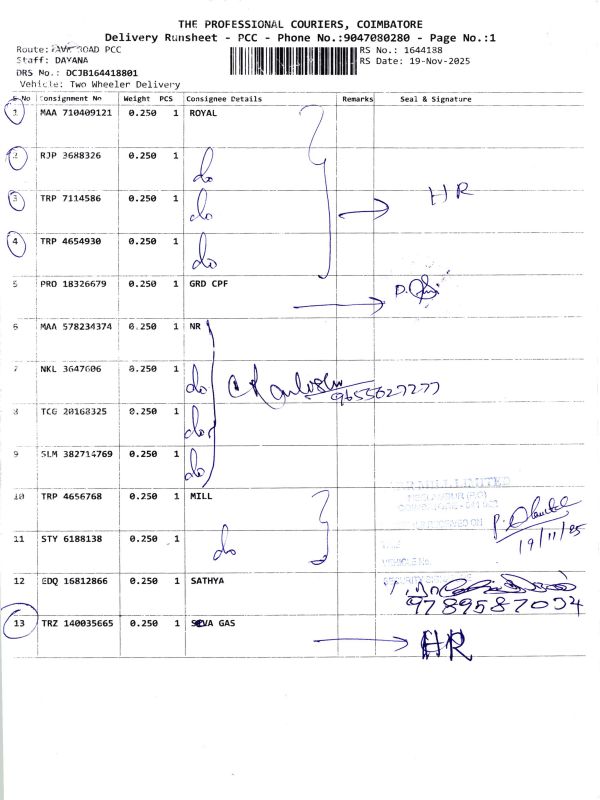 THE PROFESSIONAL COURIERS, COIMBATORE
Delivery Runsheet - PCC - Phone No.:9047080280 - Page No.:1
Route: ROAD PCC
RS No.: 1644188
Staff: DAYANA
RS Date: 19-Nov-2025
DRS No.: DCJB164418801
Vehicle: Two Wheeler Delivery
S.No Consignment No Weight PCS Consignee Details Remarks Seal & Signature
1 MAA 710409121 0.250 1 ROYAL
2 RJP 3688326 0.250 1 do
3 TRP 7114586 0.250 1 do HR
4 TRP 4654930 0.250 1 do
5 PRO 18326679 0.250 1 GRD CPF
6 MAA 578234374 0.250 1 NR
7 NKL 3647606 0.250 1 do
8 TCG 20168325 0.250 1 do
9 SLM 382714769 0.250 1 do
MILL LIMITED
10 TRP 4656768 0.250 1 MILL
19/11/25
11 STY 6188138 0.250 1 do
VEHICLE No.
12 EDQ 16812866 0.250 1 SATHYA
9789587034
13 TRZ 140035665 0.250 1 SIVA GAS
HR